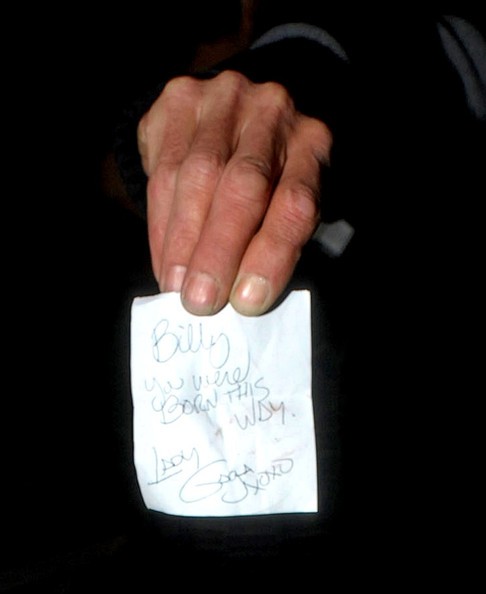 Billy
you were
BORN THIS
WAY.
LADY
GAGA XOXO